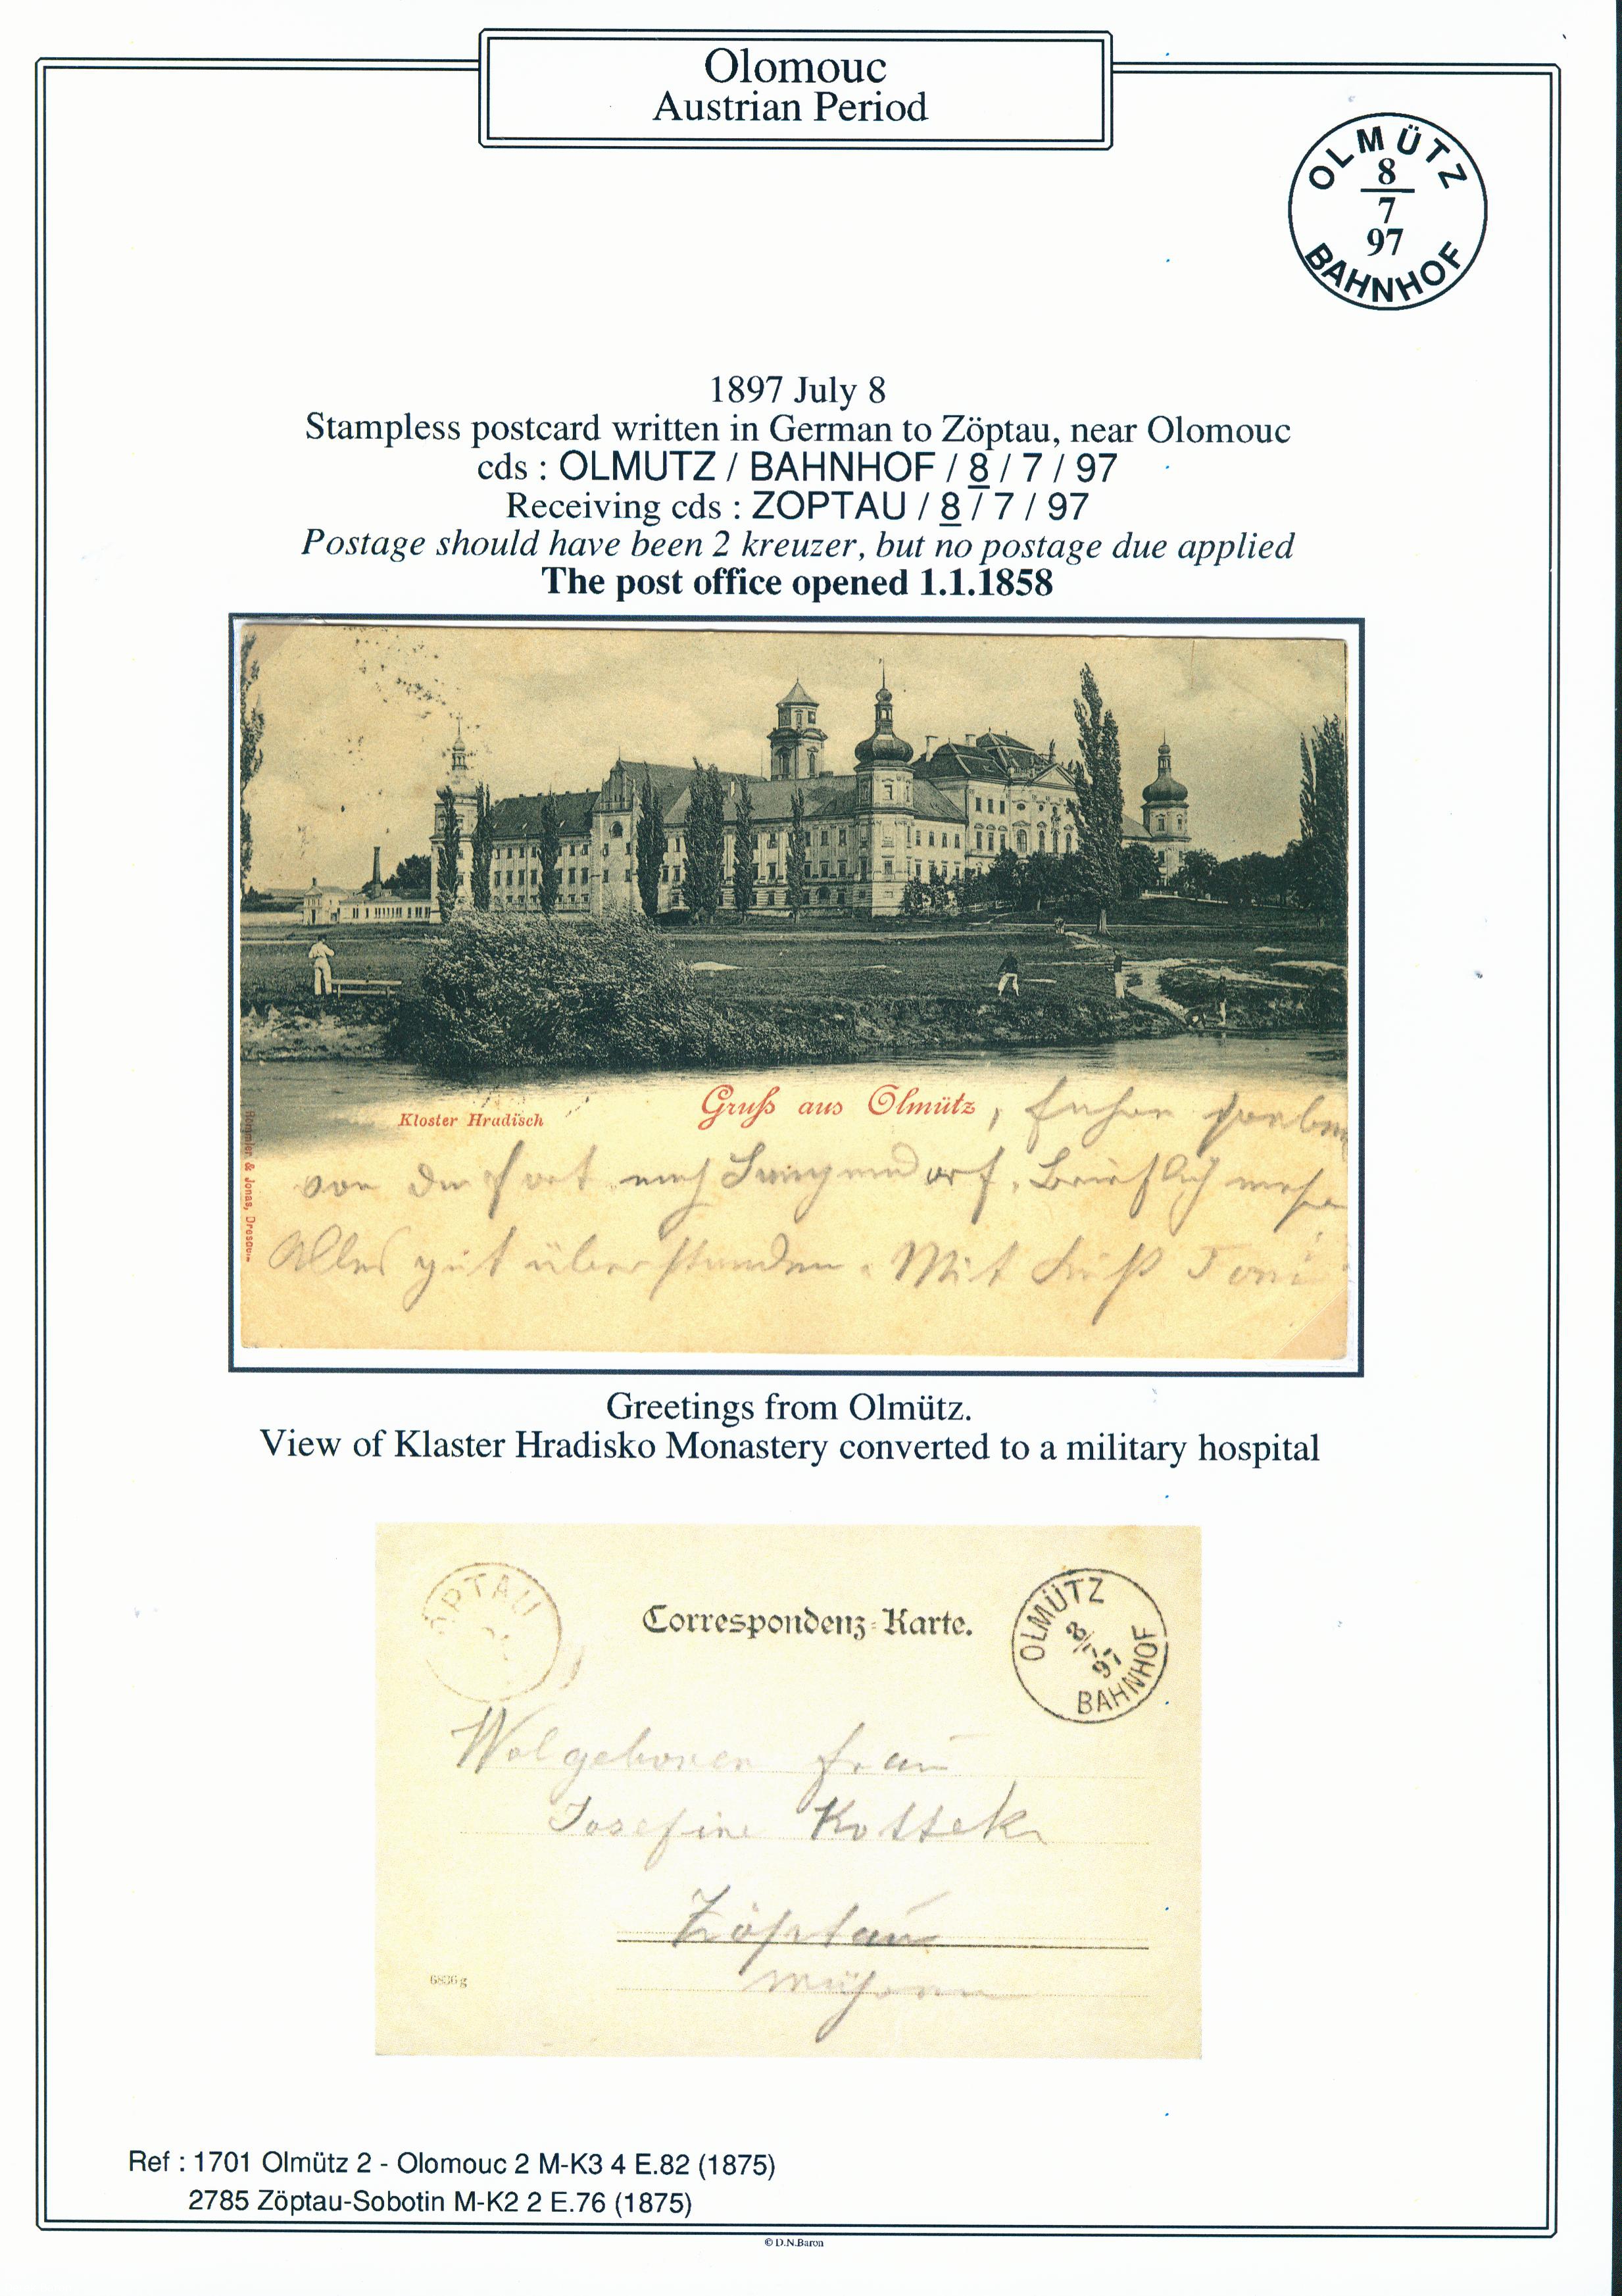 Olomouc
Austrian Period
OLMÜTZ
8
7
97
BAHNHOF
1897 July 8
Stampless postcard written in German to Zöptau, near Olomouc
cds : OLMUTZ / BAHNHOF / 8 / 7 / 97
Receiving cds : ZOPTAU / 8 / 7 / 97
Postage should have been 2 kreuzer, but no postage due applied
The post office opened 1.1.1858
Kloster Hradisch
Gruß aus Olmütz, fuhren soeben
von da fort nach . Brieflich mehr
Alles gut überstanden. Mit Toni
& Jonas, Dresden
Greetings from Olmütz.
View of Klaster Hradisko Monastery converted to a military hospital
ÖPTAU
Correspondenz-Karte.
OLMÜTZ
8/7
97
BAHNHOF
Wolgeboren Frau
Josefine Kottek
Zöptau
Mähren
6836g
Ref : 1701 Olmütz 2 - Olomouc 2 M-K3 4 E.82 (1875)
2785 Zöptau-Sobotin M-K2 2 E.76 (1875)
© D.N.Baron